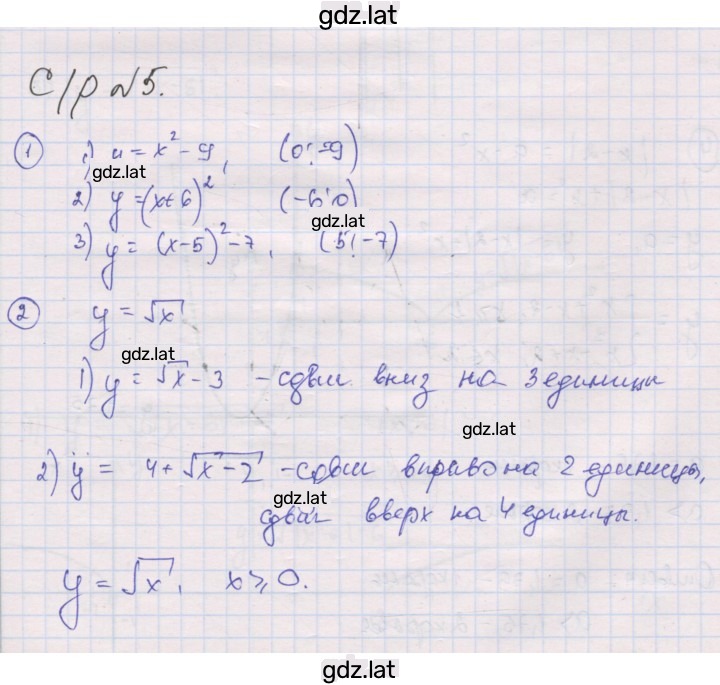 gdz.lat
С/р №5.
① 1) y = x² - 9, (0; -9)
gdz.lat
2) y = (x+6)² (-6; 0)
gdz.lat
3) y = (x-5)² - 7, (5; -7)
② y = √x
gdz.lat
1) y = √x - 3 - сдвиг вниз на 3 единицы
gdz.lat
2) y = 4 + √x-2 - сдвиг вправо на 2 единицы,
gdz.lat
сдвиг вверх на 4 единицы.
y = √x, x ⩾ 0.
gdz.lat